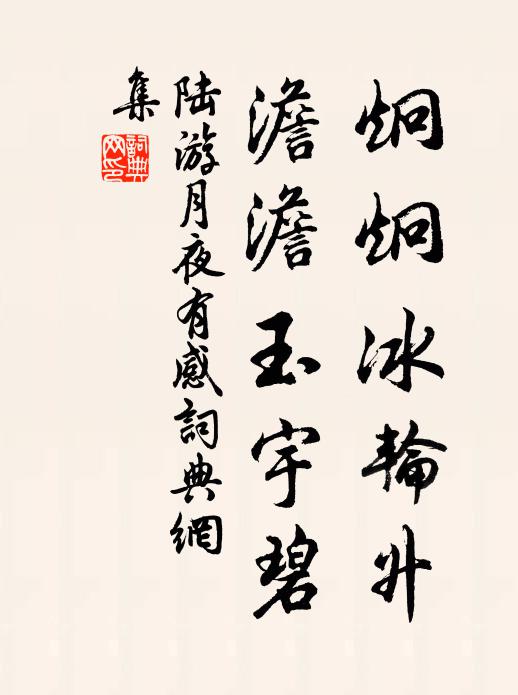 炯炯冰輪升
澹澹玉宇碧
陆游月夜有感詞典網
集
詞典網印